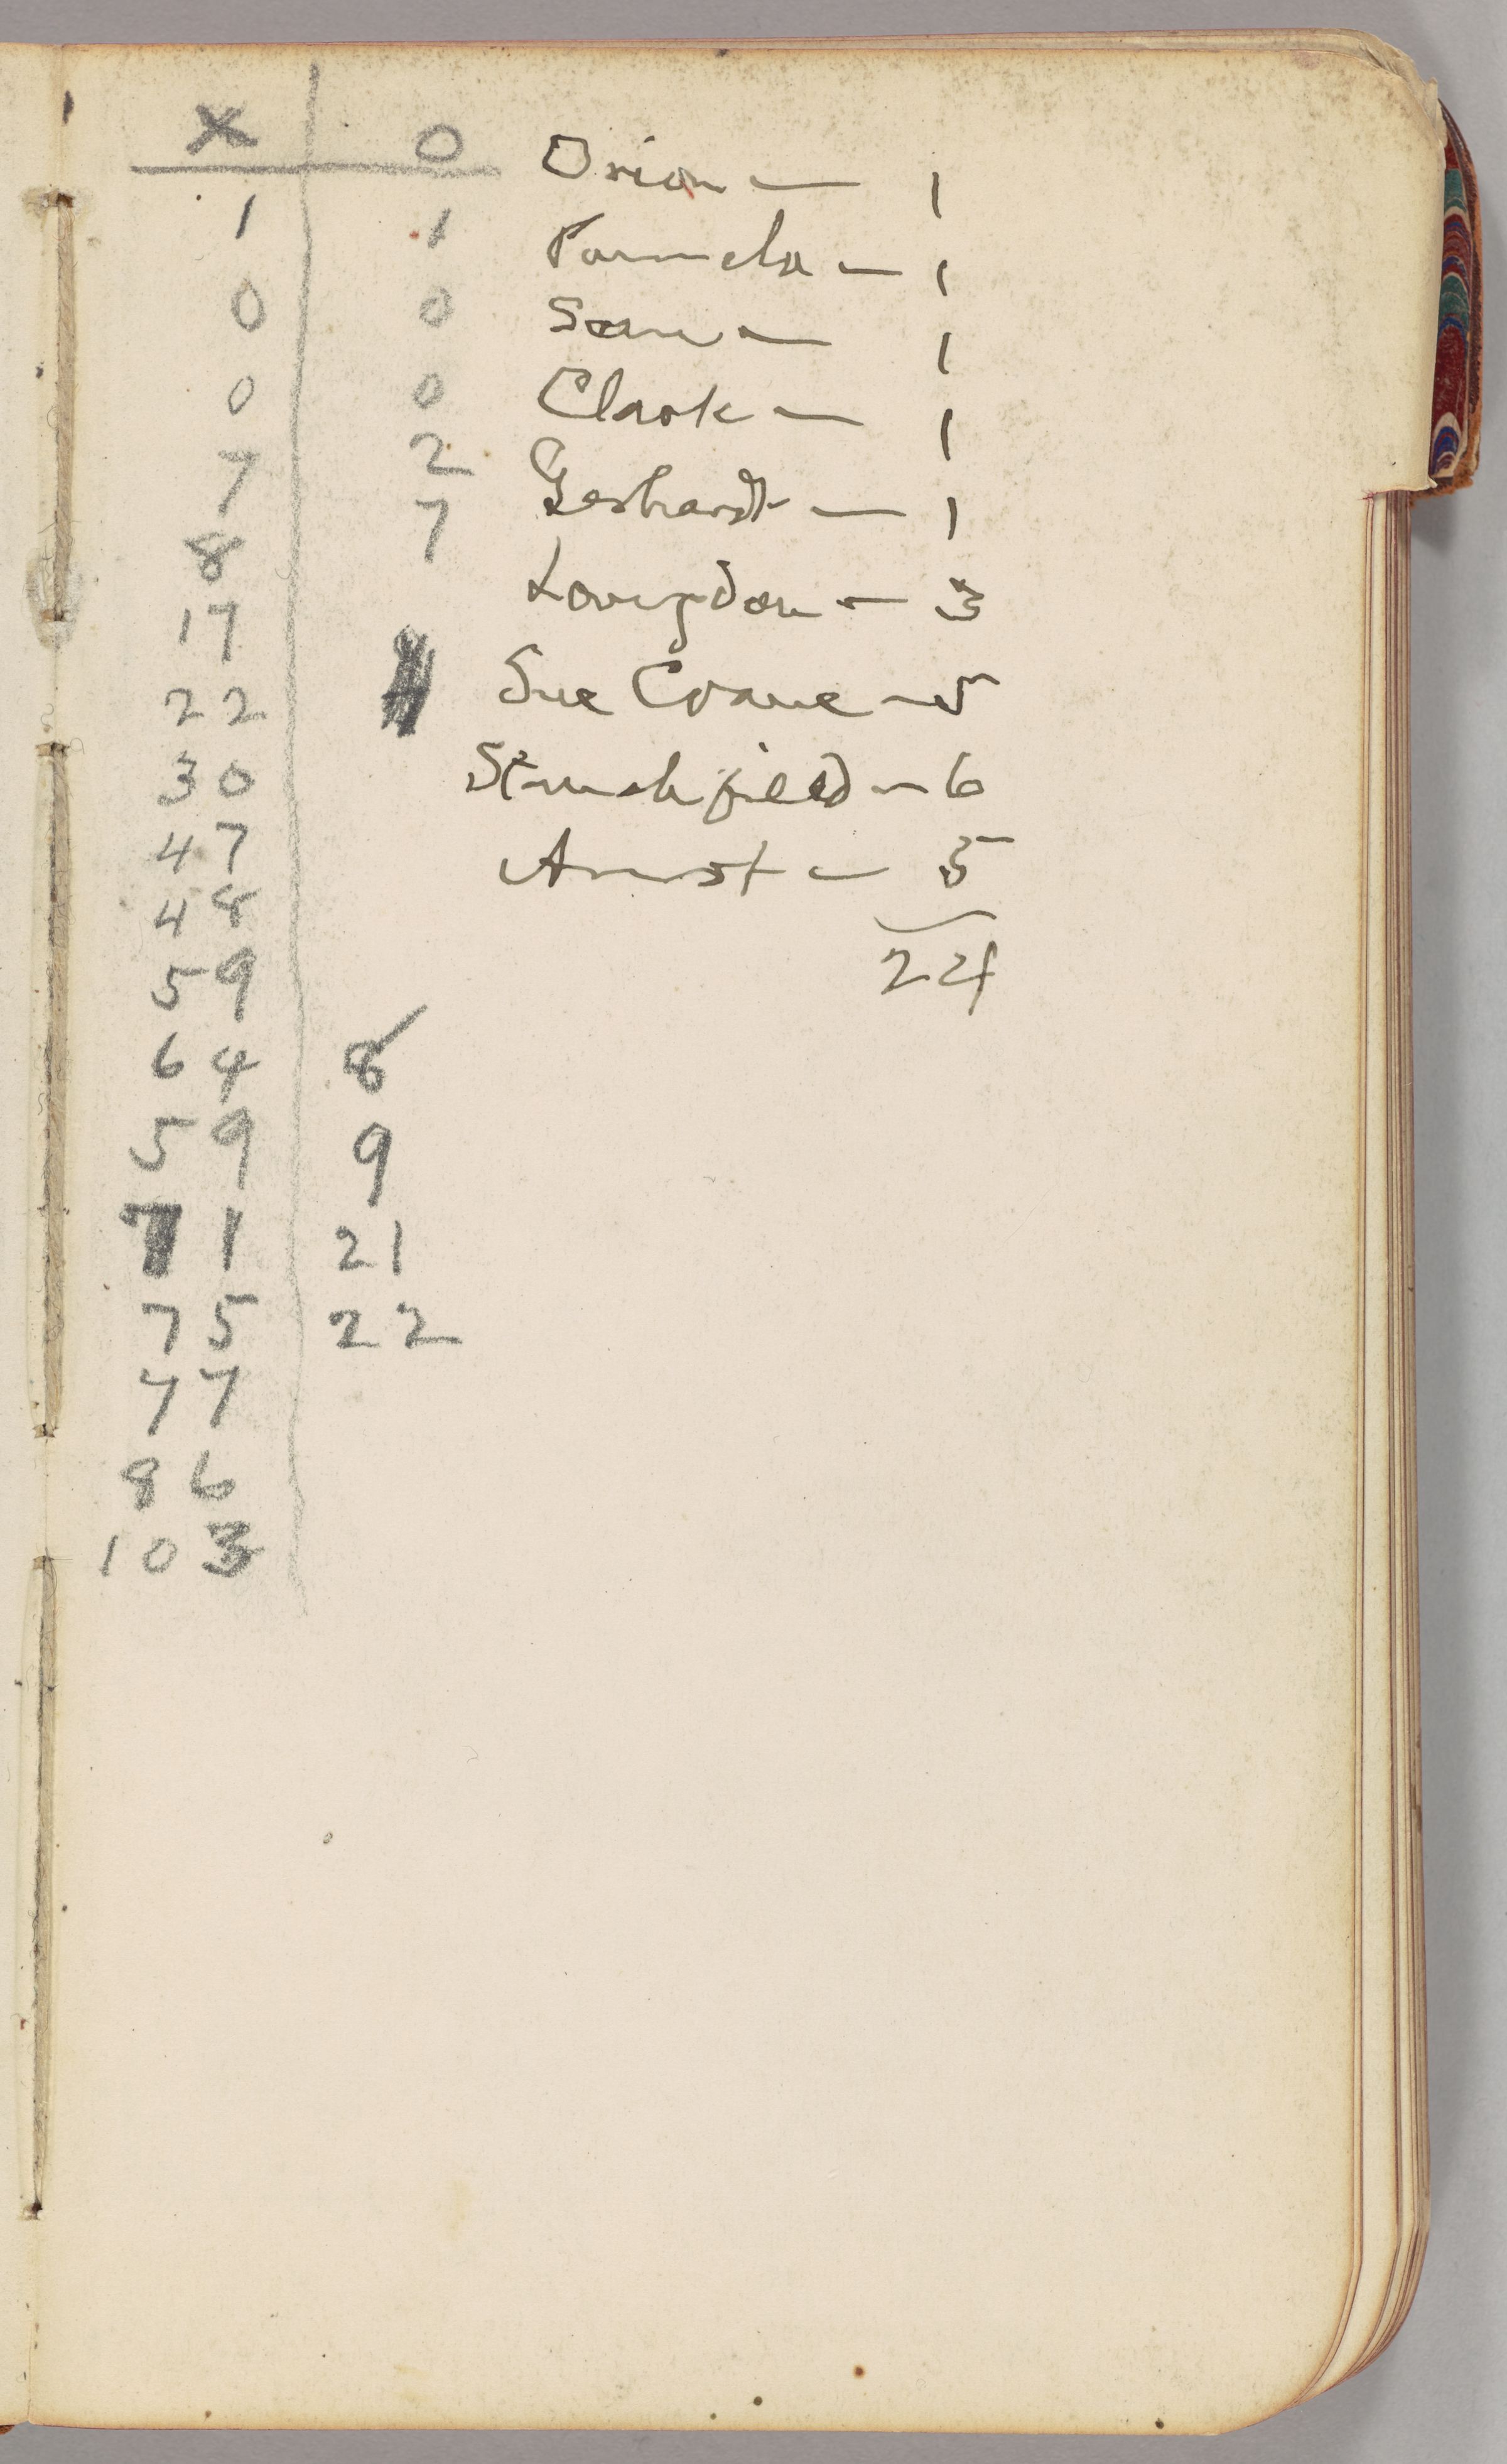 X O
1 1
0 0
0 0
7 2
8 7
17
22
30
47
48
59
64 8
59 9
71 21
75 22
77
86
103
Orion — 1
Pamela — 1
Sam — 1
Clark — 1
Gerhardt — 1
Langdon — 3
Sue Crane — 5
Stanchfield — 6
— 5
24